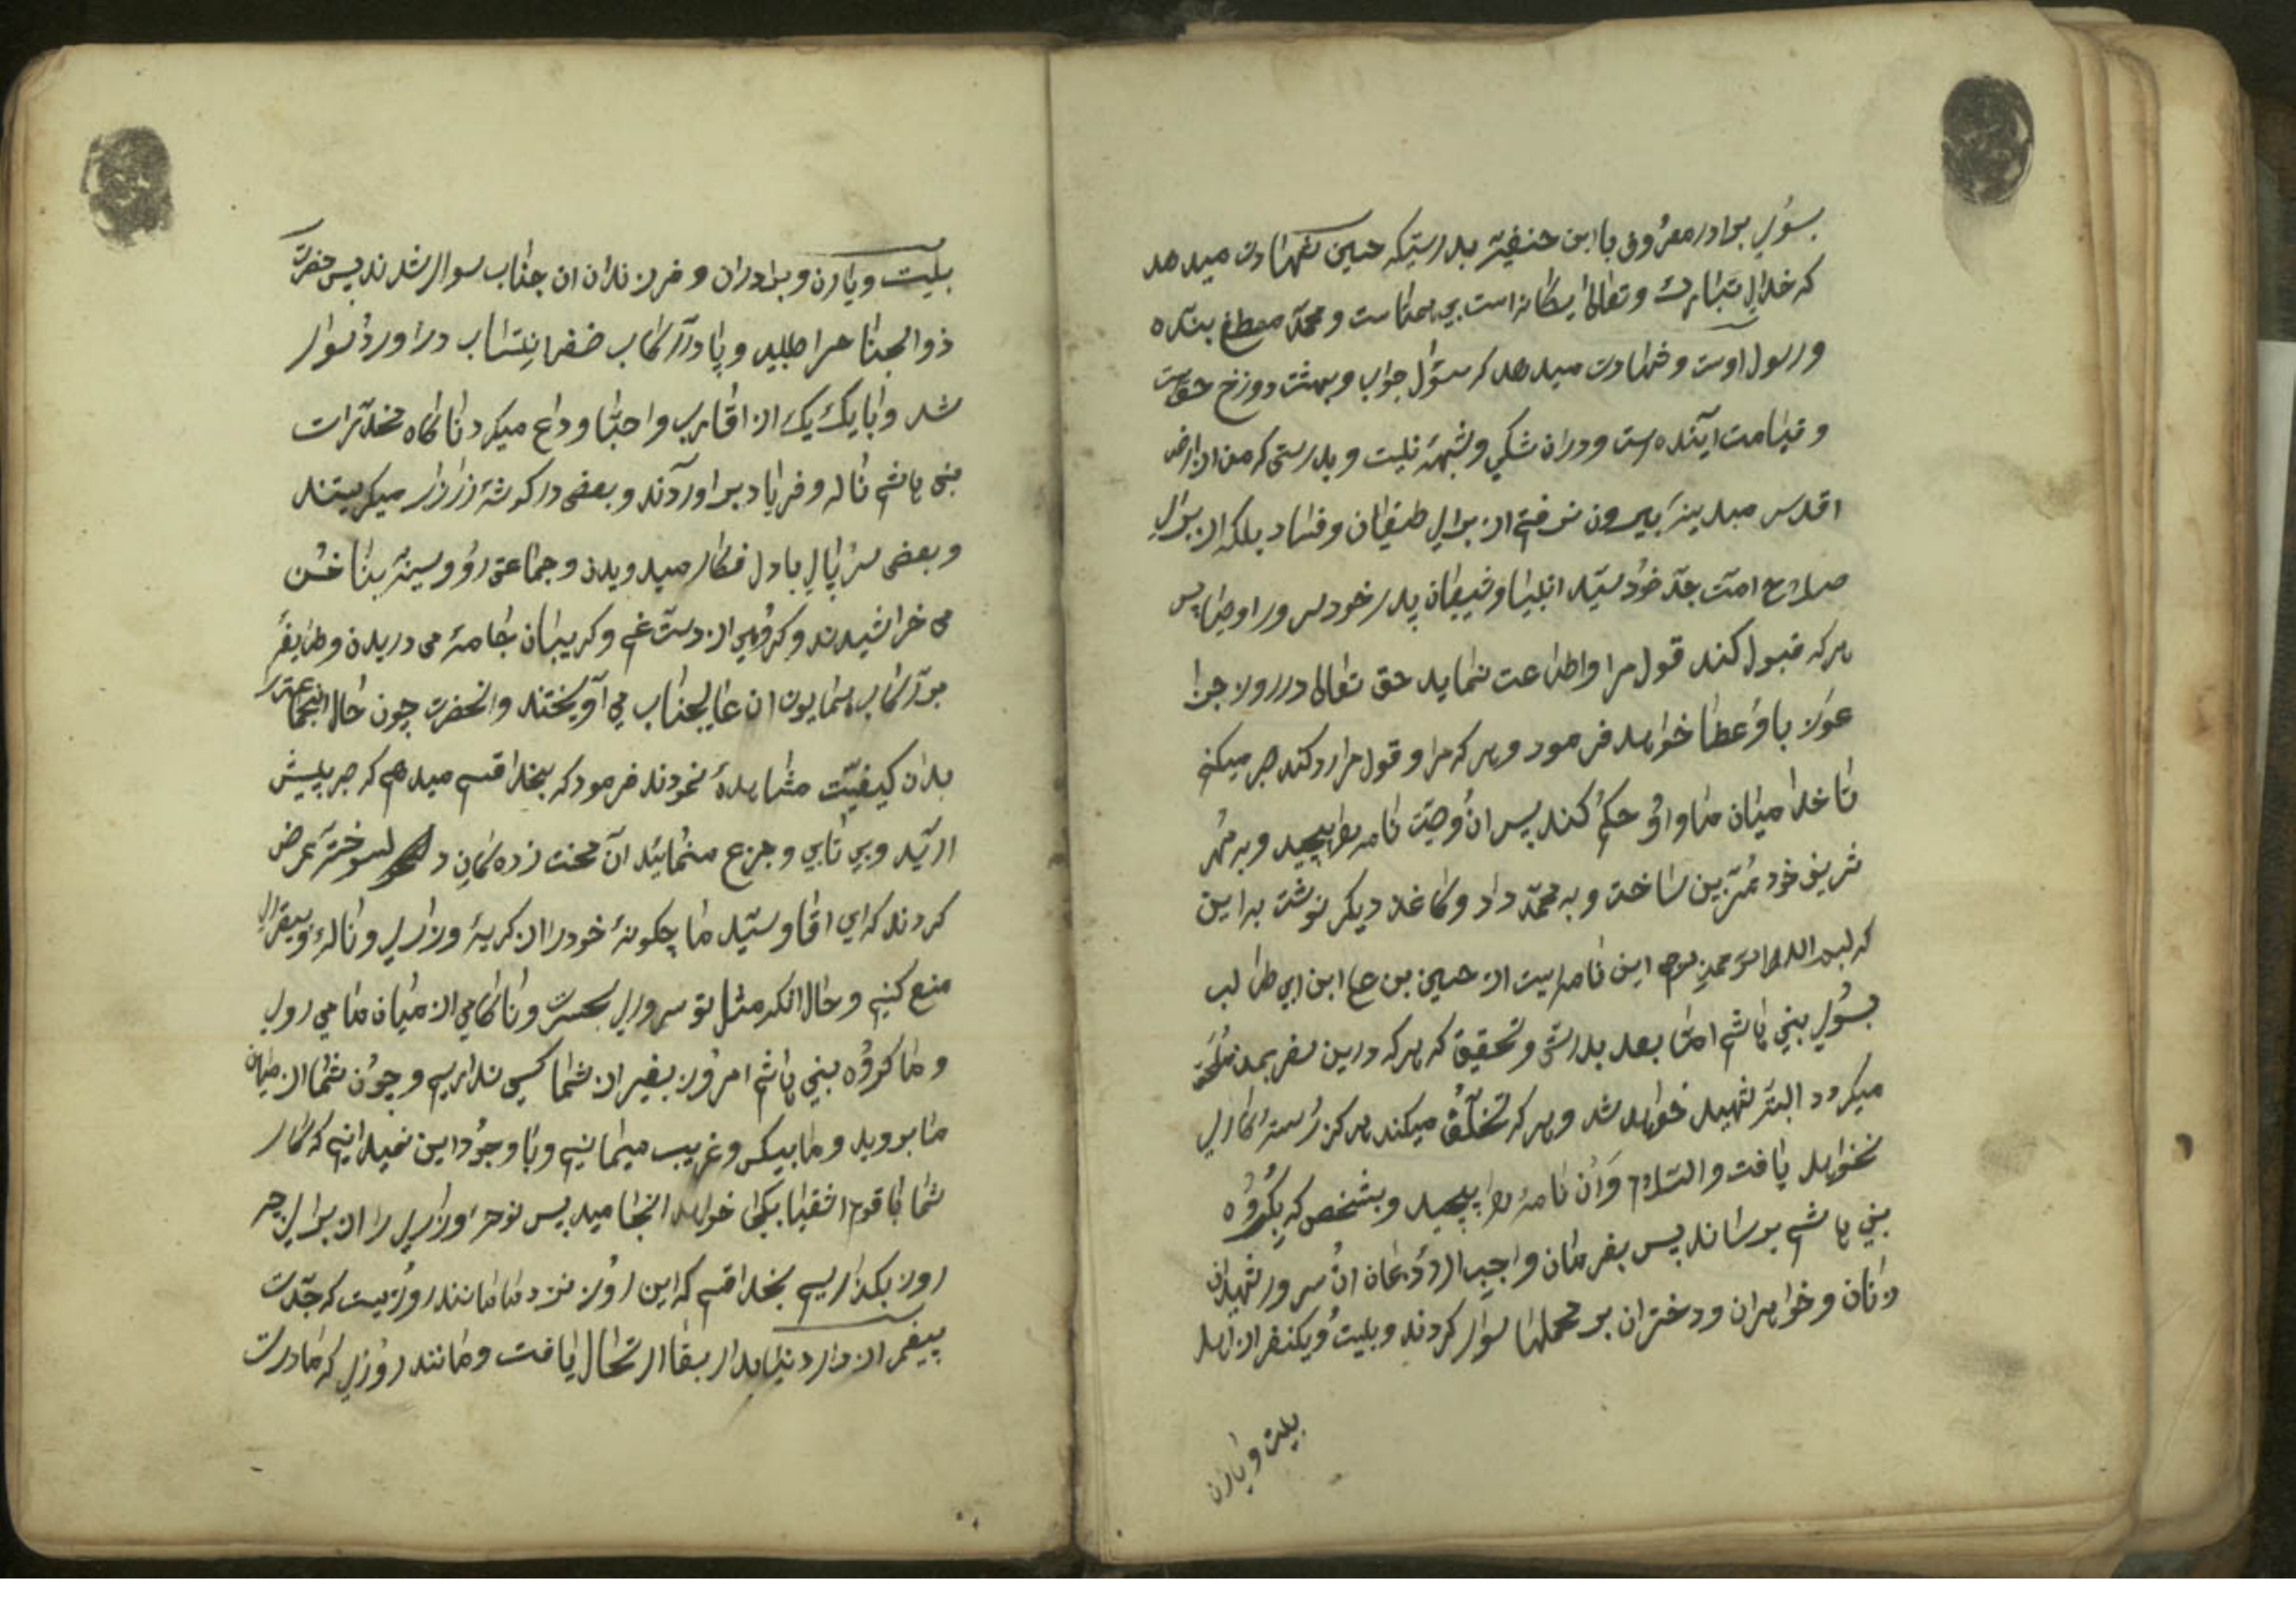 بسوی برادر معروف با ابن حنفیّه بدرستیکه حسین شهادت میدهد
که خدای تبارک و تعالی یکانه است بی همتاست و محمّد مصطفی بنده
و رسول اوست و شهادت میدهد که سئول جواب و بهشت دوزخ حقست
و قیامت آینده ست و در ان شکی و شبهه نیست و بدرستی که من از ارض
اقدس مدینه بیرون نرفتم از برای طغیان و فساد بلکه از برای
صلاح امت جدّ خود سیّد انبیا و شیعیان پدر خود سرور اوصیا پس
هر که قبول کند قول مرا و اطاعت نماید حق تعالی در روز جزا
عوض باو عطا خواهد فرمود و هر که مرا و قول مرا رد کند صبر میکنم
تا خدا میان ما و او حکم کند پس ان وصیّت نامه را پیچید و به مُهر
شریف خود مُزیّن ساخت و به محمّد داد و کاغذ دیکر نوشت به این
که بسم الله الرحمن الرحیم این نامه ایست از حسین بن علی ابن ابی طالب
بسوی بنی هاشم امّا بعد بدرستی و تحقیق که هر که درین سفر بمن ملحق
میکردد البتّه شهید خواهد شد و هر که تخلّف میکند هرکز رُستکاری
نخواهد یافت والسّلام و ان نامه را پیچید و بشخصی که بکروه
بنی هاشم برساند پس بفرمان واجب الاذعان ان سرور شهیدان
زنان و خواهران و دختران بر محملها سوار کردند و بیست و یکنفر از اهل
بیت و یارن
بیت و یارن و برادران و فرزندان ان جناب سوار شدند پس حضرت
ذوالجناح را طلبید و پا در رکاب ظفر انتساب در اورد سوار
شد و با یک یک از اقارب و احبّا وداع میکرد ناکاه مخدّرات
بنی هاشم ناله و فریاد بر اوردند و بعضی در کوشه زار زار میکریستند
و بعضی سر پای با دل فکار میدویدن و جماعتی رو و سینه بناخن
می خراشیدند و کروهی از دست غم و کریبان جامه می دریدن و طایفه
بر رکاب همایون ان عالیجناب می آویختند و انحضرت چون حال انجماعترا
بدان کیفیّت مشاهده نمودند فرمود که بخدا قسم میدهم که صبر پیش
ارید و بی تابی و جزع منمائید ان محنت زده کان دلسوخته عرض
کردند که ای اقا و سیّد ما چکونه خود را از کریه و زاری و ناله و بیقراری
منع کنیم و حال انکه مثل تو سروری بحسرت و ناکامی از میان ما می روی
و ما کروه بنی هاشم امروز بغیر از شما کسی نداریم و چون شما از میان
ما بروید و ما بیکس و غریب میمانیم و با وجود این نمیدانیم که کار
شما با قوم اشقیا بکجا خواهد انجامید پس نوحه و زاری را از برای چه
روز بکذاریم بخدا قسم که این روز نزد ما مانند روزیست که جدّت
پیغمبر از دار دنیا بدار بقا ارتحال یافت و مانند روزی که مادرت